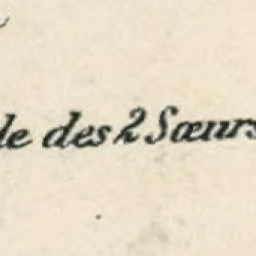 de des 2 Sœurs